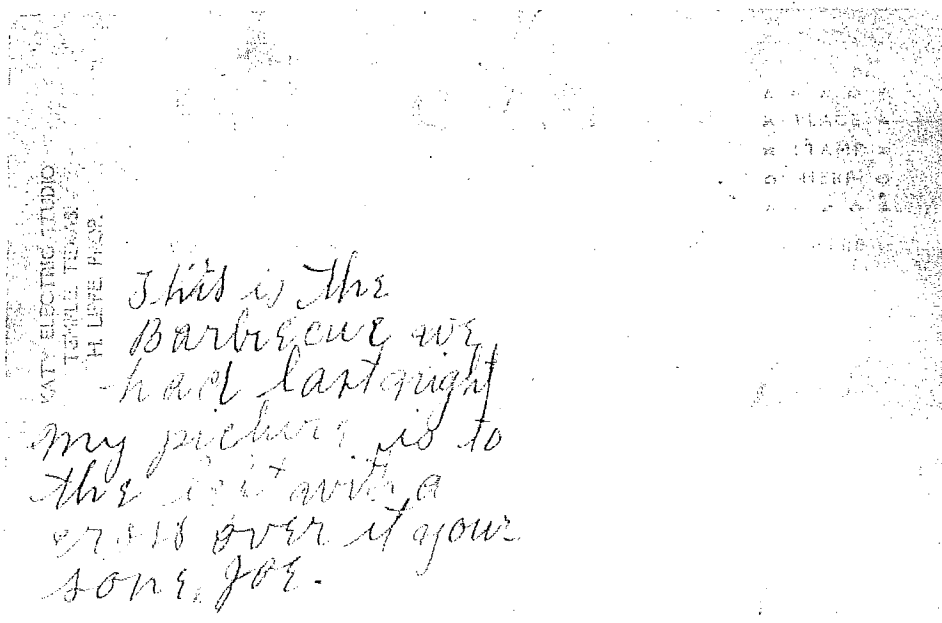 KATY ELECTRIC STUDIO
TEMPLE TEXAS.
H. LIPPE PROP.
PLACE
STAMP
HERE
This is the
Barbecue we
had last night
My picture is to
the left with a
cross over it your
sone, Joe.